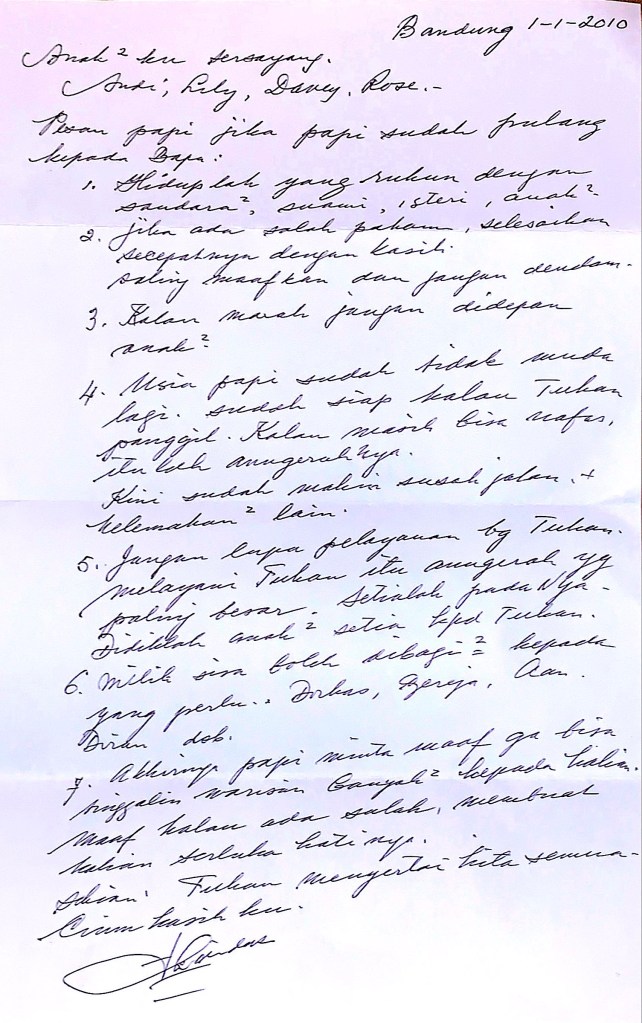 Bandung 1-1-2010
Anak² ku tersayang.
Andi, Lily, Davey, Rose.-
Pesan papi jika papi sudah pulang
kepada Bapa:
1. Hiduplah yang rukun dengan
saudara², suami, isteri, anak².
2. jika ada salah paham, selesaikan
secepatnya dengan kasih.
saling maafkan dan jangan dendam.
3. Kalau marah jangan didepan
anak².
4. Usia papi sudah tidak muda
lagi. sudah siap kalau Tuhan
panggil. Kalau masih bisa nafas,
itulah anugerahNya.
Kini sudah makin susah jalan, +
kelemahan² lain.
5. Jangan lupa pelayanan bg Tuhan.
melayani Tuhan itu anugerah yg
paling besar. Setialah padaNya-
Didiklah anak² setia kpd Tuhan.
6. Milik sisa boleh dibagi² kepada
yang perlu.. Dorkas, Gereja, Aan.
Dian dsb.
7. Akhirnya papi minta maaf ga bisa
tinggalin warisan banyak² kepada kalian.
Maaf kalau ada salah, membuat
kalian terluka hatinya.
Tuhan menyertai kita semua-
Cium kasih ku.